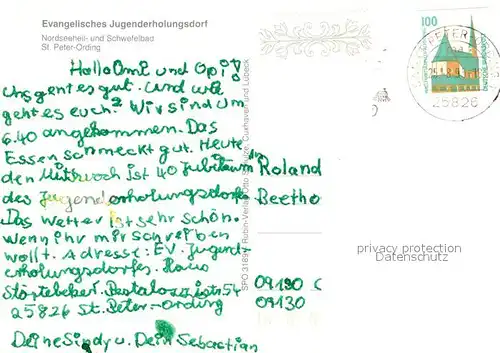 Evangelisches Jugenderholungsdorf
Nordseeheil- und Schwefelbad
St. Peter-Ording
Hallo Omi und Opi!
Uns geht es gut. und wie
geht es euch? Wir sind um
6.40 angekommen. Das
Essen schmeckt gut. Heute
den Mittwoch ist 40 Jubiläum
des Jugenderholungsdorfes
Das Wetter ist sehr schön.
wenn ihr mir schreiben
wollt. Adresse: EV. Jugend-
erholungsdorfes. Haus
Störtebeker. Pestalozzistr 54
25826 St. Peter-Ording
Deine Sindy u. Dein Sebastian
SPO 3189 Rubin-Verlag Otto Schulze, Cuxhaven und Lübeck
100
DEUTSCHE BUNDESPOST
25826
An
Roland
Beetho
09190 C
09130
privacy protection
Datenschutz